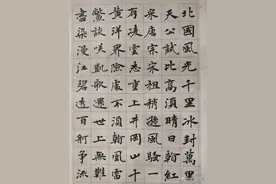 北國風光千里冰封萬里
天公試比高須晴日看紅
采唐宗宋祖稍遜風騷一
有凌雲志重上井岡山千
黃洋界險處不須看風雷
鱉談笑凱歌還世上無難
盡染漫江碧透百舸爭流